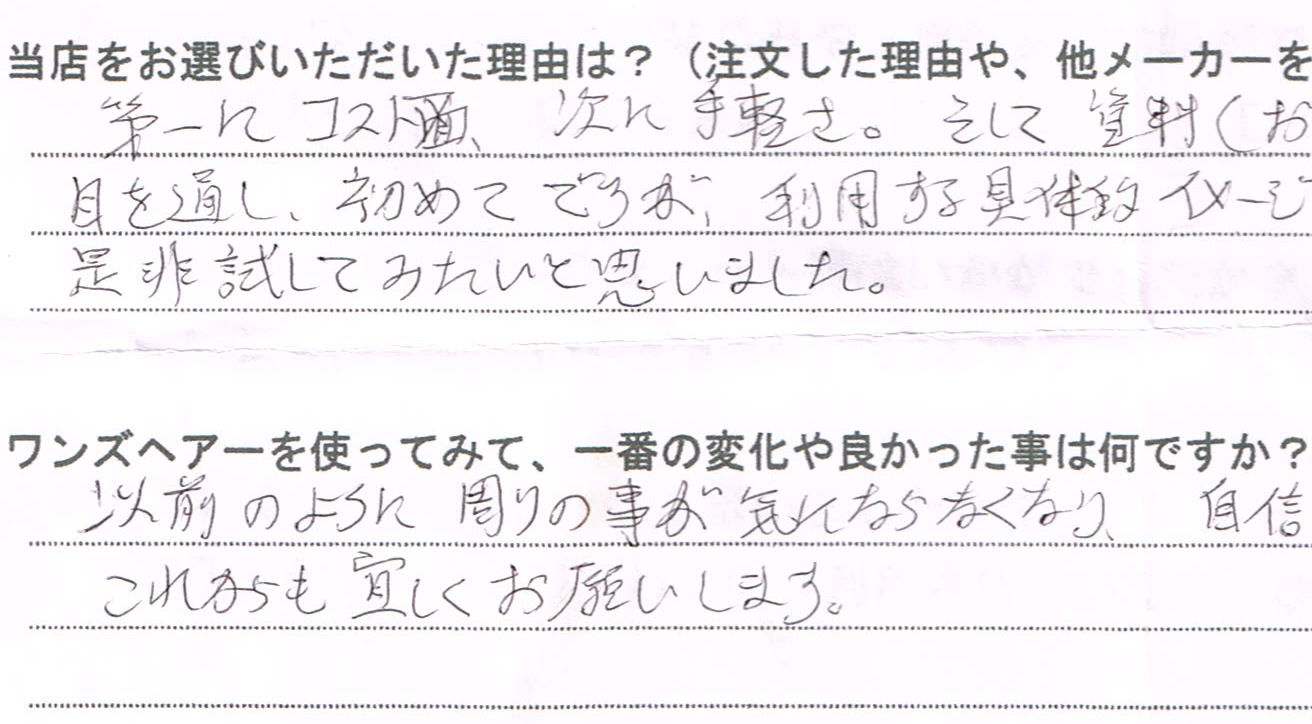 当店をお選びいただいた理由は？（注文した理由や、他メーカーを
第一に コスト面、次に 手軽さ。そして 資料（お
目を通し、初めて ですが、利用する具体的 イメージ
是非試してみたいと思いました。
ワンズヘアーを使ってみて、一番の変化や良かった事は何ですか？
以前のように 周りの事が気にならなくなり、自信
これからも 宜しくお願いします。